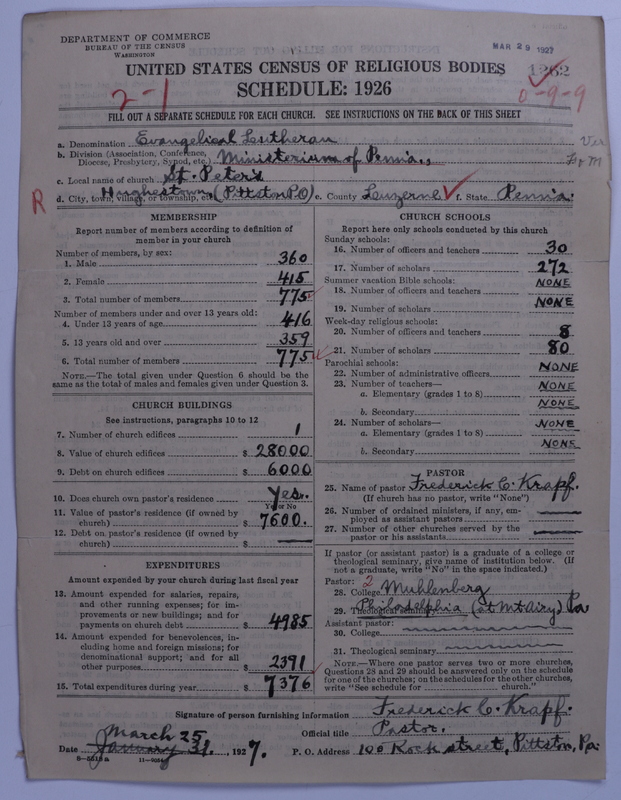 DEPARTMENT OF COMMERCE
BUREAU OF THE CENSUS
WASHINGTON
MAR 29 1927
UNITED STATES CENSUS OF RELIGIOUS BODIES
SCHEDULE: 1926
2-1
0-9-9
FILL OUT A SEPARATE SCHEDULE FOR EACH CHURCH. SEE INSTRUCTIONS ON THE BACK OF THIS SHEET
a. Denomination Evangelical Lutheran
b. Division (Association, Conference, Diocese, Presbytery, Synod, etc.) Ministerium of Penna.,
c. Local name of church St. Peter's
R
d. City, town, village, or township, etc. Hughestown (Pittston P.O) e. County Luzerne f. State Penna.
MEMBERSHIP
Report number of members according to definition of
member in your church
Number of members, by sex:
1. Male 360
2. Female 415
3. Total number of members 775
Number of members under and over 13 years old:
4. Under 13 years of age 416
5. 13 years old and over 359
6. Total number of members 775
NOTE.—The total given under Question 6 should be
same as the total of males and females given under Question 3.
CHURCH BUILDINGS
See instructions, paragraphs 10 to 12
7. Number of church edifices 1
8. Value of church edifices $ 28000
9. Debt on church edifices $ 6000
10. Does church own pastor's residence Yes.
Yes or No
11. Value of pastor's residence (if owned by
church) $ 7600.
12. Debt on pastor's residence (if owned by
church) $
EXPENDITURES
Amount expended by your church during last fiscal year
13. Amount expended for salaries, repairs,
and other running expenses; for im-
provements or new buildings; and for
payments on church debt $ 4985
14. Amount expended for benevolences, in-
cluding home and foreign missions; for
denominational support; and for all
other purposes $ 2391
15. Total expenditures during year $ 7376
CHURCH SCHOOLS
Report here only schools conducted by this church
Sunday schools:
16. Number of officers and teachers 30
17. Number of scholars 272
Summer vacation Bible schools:
18. Number of officers and teachers NONE
19. Number of scholars NONE
Week-day religious schools:
20. Number of officers and teachers 8
21. Number of scholars 80
Parochial schools:
22. Number of administrative officers NONE
23. Number of teachers—
a. Elementary (grades 1 to 8) NONE
b. Secondary NONE
24. Number of scholars—
a. Elementary (grades 1 to 8) NONE
b. Secondary NONE
PASTOR
25. Name of pastor Frederick C. Krapf.
(If church has no pastor, write "None")
26. Number of ordained ministers, if any, em-
ployed as assistant pastors
27. Number of other churches served by the
pastor or his assistants
If pastor (or assistant pastor) is a graduate of a college or
theological seminary, give name of institution below. (If
not a graduate, write "No" in the space indicated.)
Pastor: 2
28. College Muhlenberg
29. Theological seminary Philadelphia (at Mt Airy) Pa
Assistant pastor:
30. College
31. Theological seminary
NOTE.—Where one pastor serves two or more churches,
Questions 28 and 29 should be answered only on the schedule
for one of the churches; on the schedules for the other churches,
write "See schedule for church."
Signature of person furnishing information Frederick C. Krapf.
Official title Pastor.
March 25
Date January 31, 1927. P. O. Address 100 Rock street, Pittston, Pa.